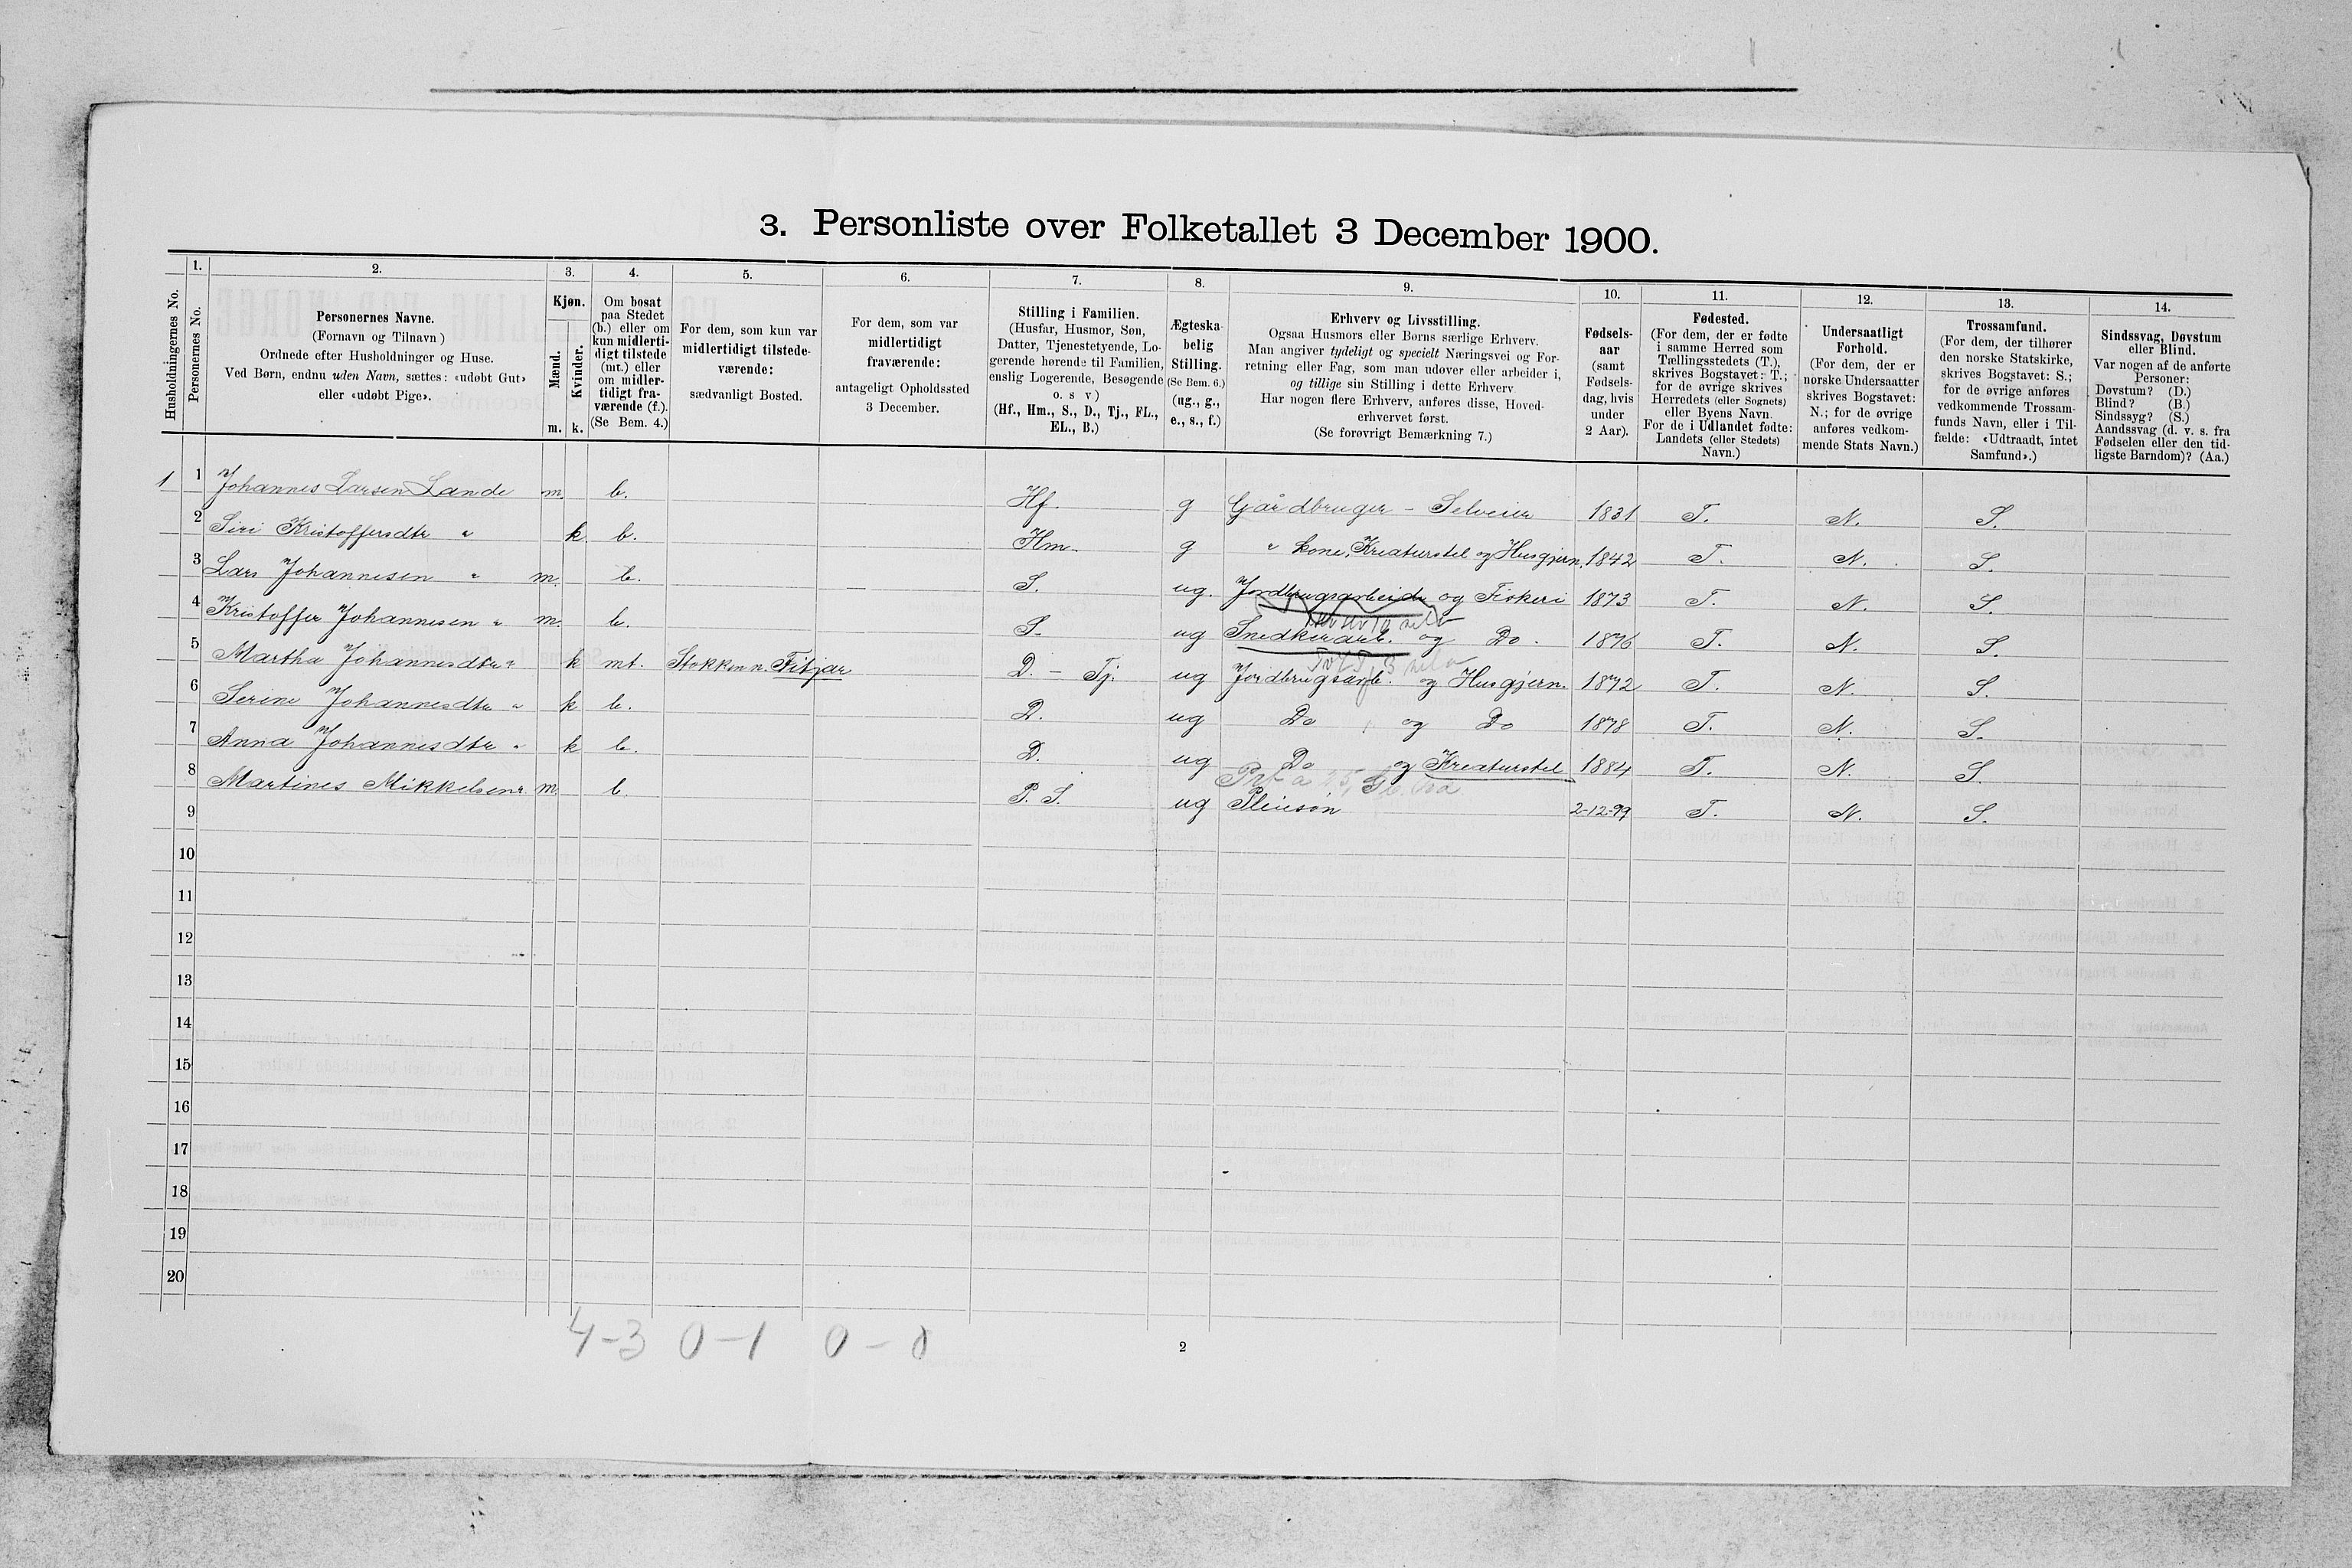 3. Personliste over Folketallet 3 December 1900.
1. 2. 3. 4. 5. 6. 7. 8. 9. 10. 11. 12. 13. 14.
Husholdningernes No.
Personernes No.
Personernes Navne.
(Fornavn og Tilnavn)
Ordnede efter Husholdninger og Huse.
Ved Børn, endnu uden Navn, sættes: «udøbt Gut»
eller «udøbt Pige».
Kjøn.
Mænd.
Kvinder.
m. k.
Om bosat
paa Stedet
(b.) eller om
kun midlerti-
digt tilstede
(mt.) eller
om midler-
tidigt fra-
værende (f.).
(Se Bem. 4.)
For dem, som kun var
midlertidigt tilstede-
værende:
sædvanligt Bosted.
For dem, som var
midlertidigt
fraværende:
antageligt Opholdssted
3 December.
Stilling i Familien.
(Husfar, Husmor, Søn,
Datter, Tjenestetyende, Lo-
gerende hørende til Familien,
enslig Logerende, Besøgende
o. s. v)
(Hf., Hm., S., D., Tj., FL.,
EL., B.)
Ægteska-
belig
Stilling.
(Se Bem. 6.)
(ug., g.,
e., s., f.)
Erhverv og Livsstilling.
Ogsaa Husmors eller Børns særlige Erhverv.
Man angiver tydeligt og specielt Næringsvei og For-
retning eller Fag, som man udøver eller arbeider i,
og tillige sin Stilling i dette Erhverv
Har nogen flere Erhverv, anføres disse, Hoved-
erhvervet først.
(Se forøvrigt Bemærkning 7.)
Fødsels-
aar
(samt
Fødsels-
dag, hvis
under
2 Aar).
Fødested.
(For dem, der er fødte
i samme Herred som
Tællingsstedets (T.),
skrives Bogstavet: T.;
for de øvrige skrives
Herredets (eller Sognets)
eller Byens Navn.
For de i Udlandet fødte:
Landets (eller Stedets)
Navn.)
Undersaatligt
Forhold.
(For dem, der er
norske Undersaatter
skrives Bogstavet:
N.; for de øvrige
anføres vedkom-
mende Stats Navn.)
Trossamfund.
(For dem, der tilhører
den norske Statskirke,
skrives Bogstavet: S.;
for de øvrige anføres
vedkommende Trossam-
funds Navn, eller i Til-
fælde: «Udtraadt, intet
Samfund».)
Sindssvag, Døvstum
eller Blind.
Var nogen af de anførte
Personer:
Døvstum? (D.)
Blind? (B.)
Sindssyg? (S.)
Aandssvag (d. v. s. fra
Fødselen eller den tid-
ligste Barndom)? (Aa.)
1 1 Johannes Larsen Lande m. b. Hf. g Gårdbruger - Selveier 1831 T. N. S.
2 Siri Kristoffersdtr " k b. Hm. g " kone, Kreaturstel og Husgjern. 1842 T. N. S.
3 Lars Johannesen " m. b. S. ug. Jordbrugsarbeide og Fiskeri 1873 T. N. S.
4 Kristoffer Johannesen " m. b. S. ug Snedkerarb. og Do. 1876 T. N. S.
5 Martha Johannesdtr " k mt. Stokken n. Fitjar D. - Tj. ug Jordbrugsarb. og Husgjern. 1872 T. N. S.
6 Serine Johannesdtr " k b. D. ug Do og Do 1878 T. N. S.
7 Anna Johannesdtr " k b. D. ug Do og Kreaturstel 1884 T. N. S.
8 Martines Mikkelsen m. b. P. S. ug Pleiesøn 2-12-99 T. N. S.
9
10
11
12
13
14
15
16
17
18
19
20
4-3 0-1 0-0
2